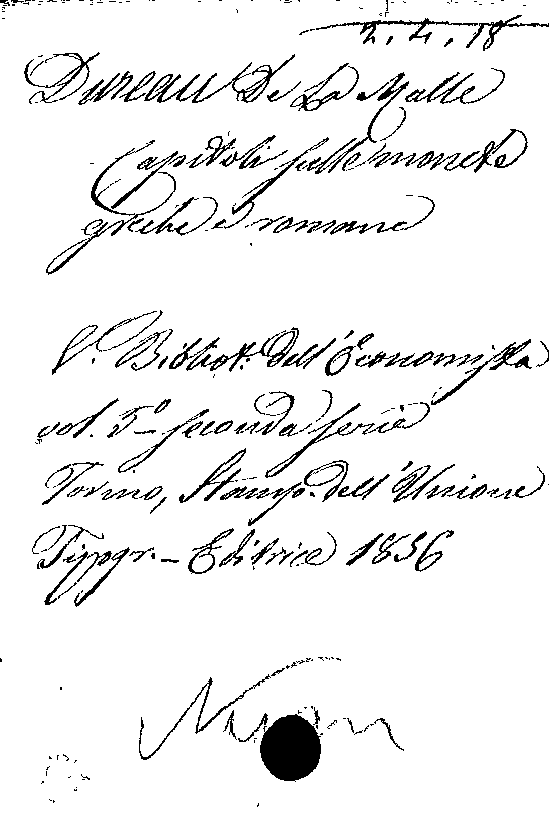 2.4.18
Dureau De La Malle
Capitoli sulle monete
greche e romane
V. Bibliot. dell'Economista
vol. 5º seconda serie
Torino, Stamp. dell'Unione
Tipogr.-Editrice 1856